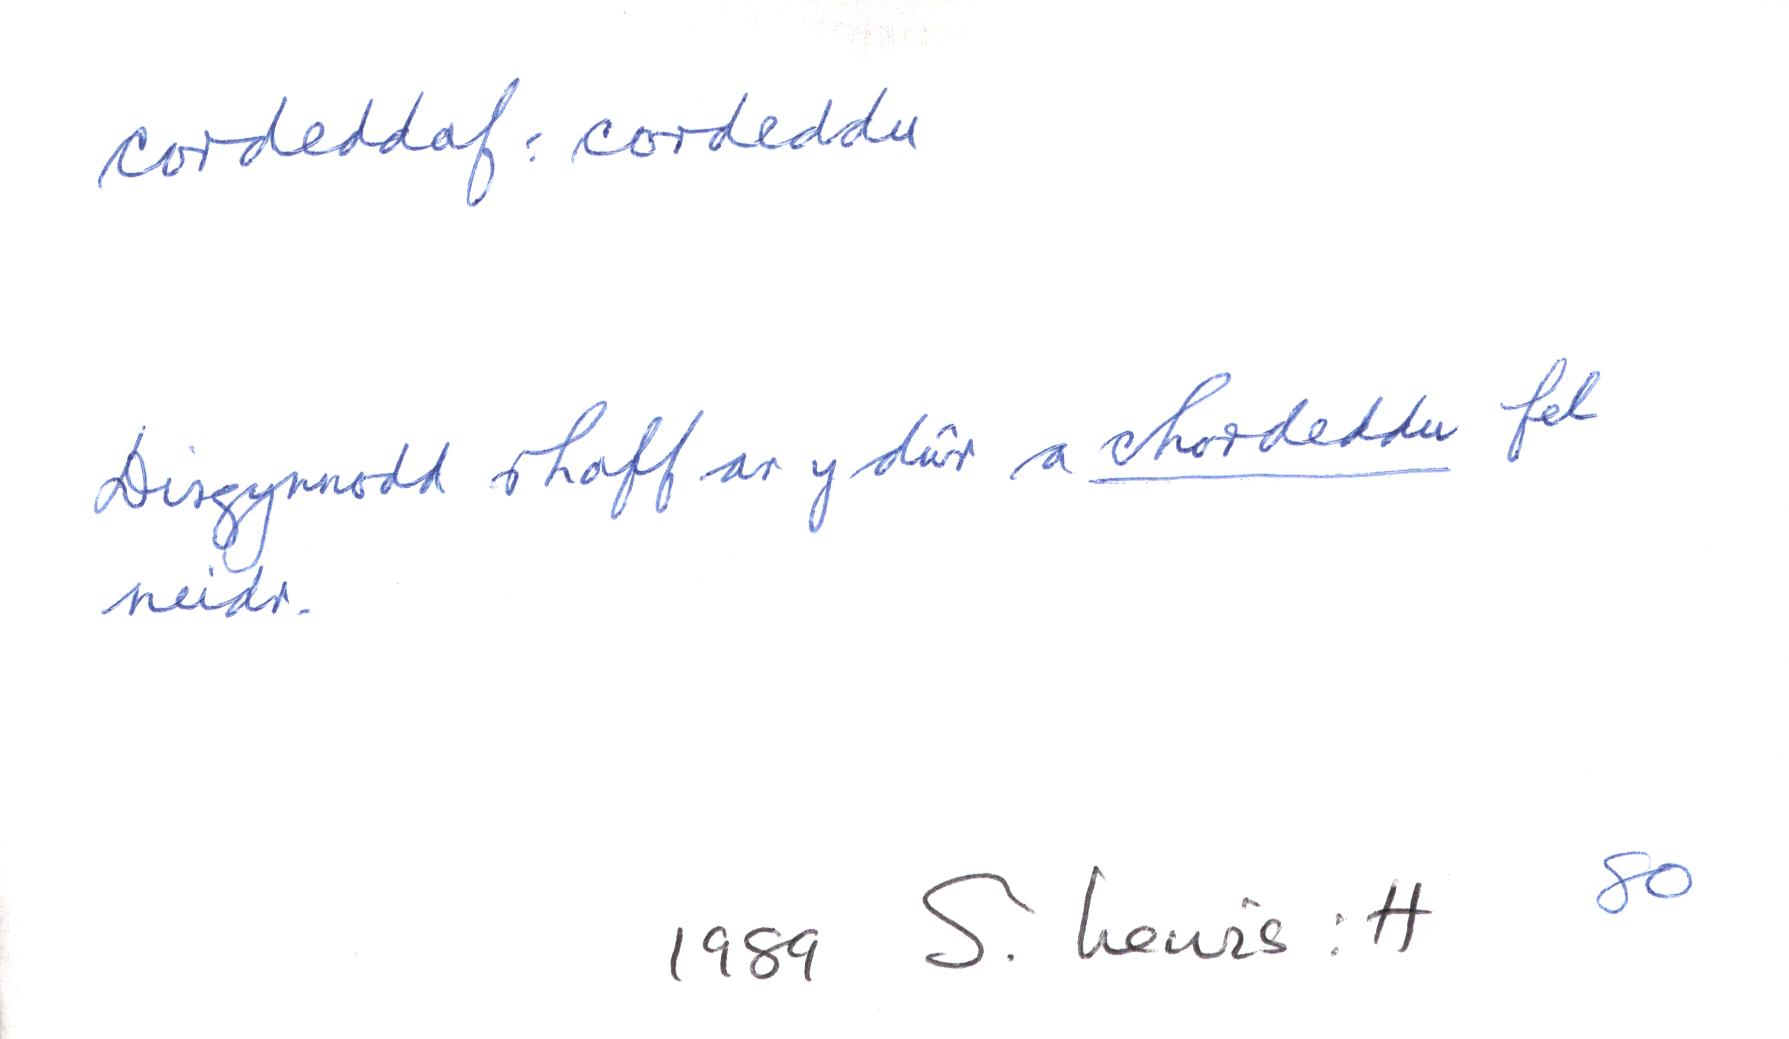 cordeddaf : cordeddu
Disgynnodd rhaff ar y dŵr a chordeddu fel
neidr.
1989 S. Lewis : H 80